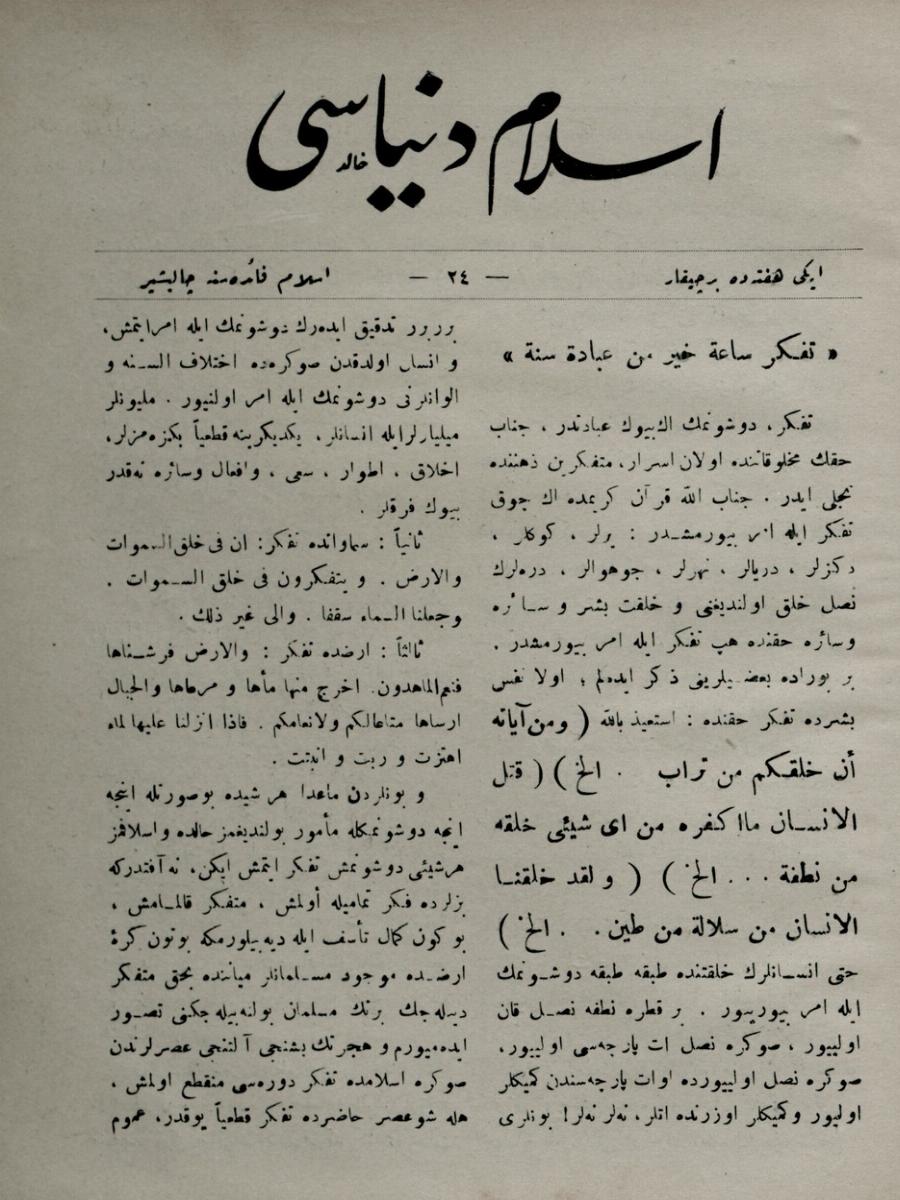 اسلام دنیاسی
خالد
ایکی هفته‌ده بر چیقار
— ٢٤ —
اسلام فائده‌سنه چالیشیر
« تفکر ساعة خیر من عبادة سنة »
تفکر، دوشونمك اك بیوك عبادتدر ، جناب
حقك مخلوقاتنده اولان اسرار، متفکرین ذهننده
تجلی ایدر . جناب الله قرآن کریمده اك چوق
تفکر ایله امر بیورمشدر : یرلر ، کوکلر ،
دکزلر ، دریالر ، نهرلر ، جوهوالر ، دره‌لرك
نصل خلق اولندیغنی و خلقت بشر و سائره
وسائره حقنده هپ تفکر ایله امر بیورمشدر .
بز بوراده بعضیلرینی ذکر ایده‌لم ؛ اولا نفس
بشرده تفکر حقنده : استعیذ بالله ( ومن آیاته
أن خلقکم من تراب . الخ ) ( قتل
الانسان مااکفره من ای شیئی خلقه
من نطفة ... الخ ) ( و لقد خلقنا
الانسان من سلالة من طین . . الخ )
حتی انسانلرك خلقتنده طبقه طبقه دوشونمك
ایله امر بیوریور . بر قطره نطفه نصل قان
اولییور ، صوکره نصل ات پارچه‌سی اولییور،
صوکره نصل اولییورده اوات پارچه‌سندن کمیکلر
اولیور وکمیکلر اوزرنده اتلر، نه‌لر نه‌لر! بونلری
برربر تدقیق ایده‌رك دوشونمك ایله امرایتمش،
و انسان اولدقدن صوکره‌ده اختلاف السنه و
الوانلرنی دوشونمك ایله امر اولنیور . ملیونلر
میلیارلرایله انسانلر، یکدیکرینه قطعیاً بکزه‌مزلر،
اخلاق ، اطوار ، سعی ، وافعال وسائره نه‌قدر
بیوك فرقلر .
ثانیاً : سماواتده تفکر: ان فی خلق السموات
والارض . و یتفکرون فی خلق السموات .
وجعلنا السماء سقفا . والی غیر ذلك .
ثالثاً : ارضده تفکر : والارض فرشناها
فنعم الماهدون. اخرج منها مأها و مرعاها والجبال
ارساها متاعالکم ولانعامکم . فاذا انزلنا علیها لماء
اهتزت و ربت و انبتت .
و بونلردن ماعدا هر شیده بوصورتله اینجه
اینجه دوشونمکله مأمور بولندیغمز حالده واسلافمز
هرشیئی دوشونمش تفکر ایتمش ایکن، نه آفتدرکه
بزلرده فکر تمامیله أولمش ، متفکر قالمامش ،
بو کون کمال تأسف ایله دیه‌بیلورمکه بوتون کرهٔ
ارضده موجود مسلمانلر میاننده بحق متفکر
دینله‌جك برتك مسلمان بولنه‌بیله‌جکنی تصور
ایده‌میورم و هجرتك بشنجی آلتنجی عصرلرندن
صوکره اسلامده تفکر دوره‌سی منقطع اولمش ،
هله شوعصر حاضرده تفکر قطعیاً یوقدر، عموم